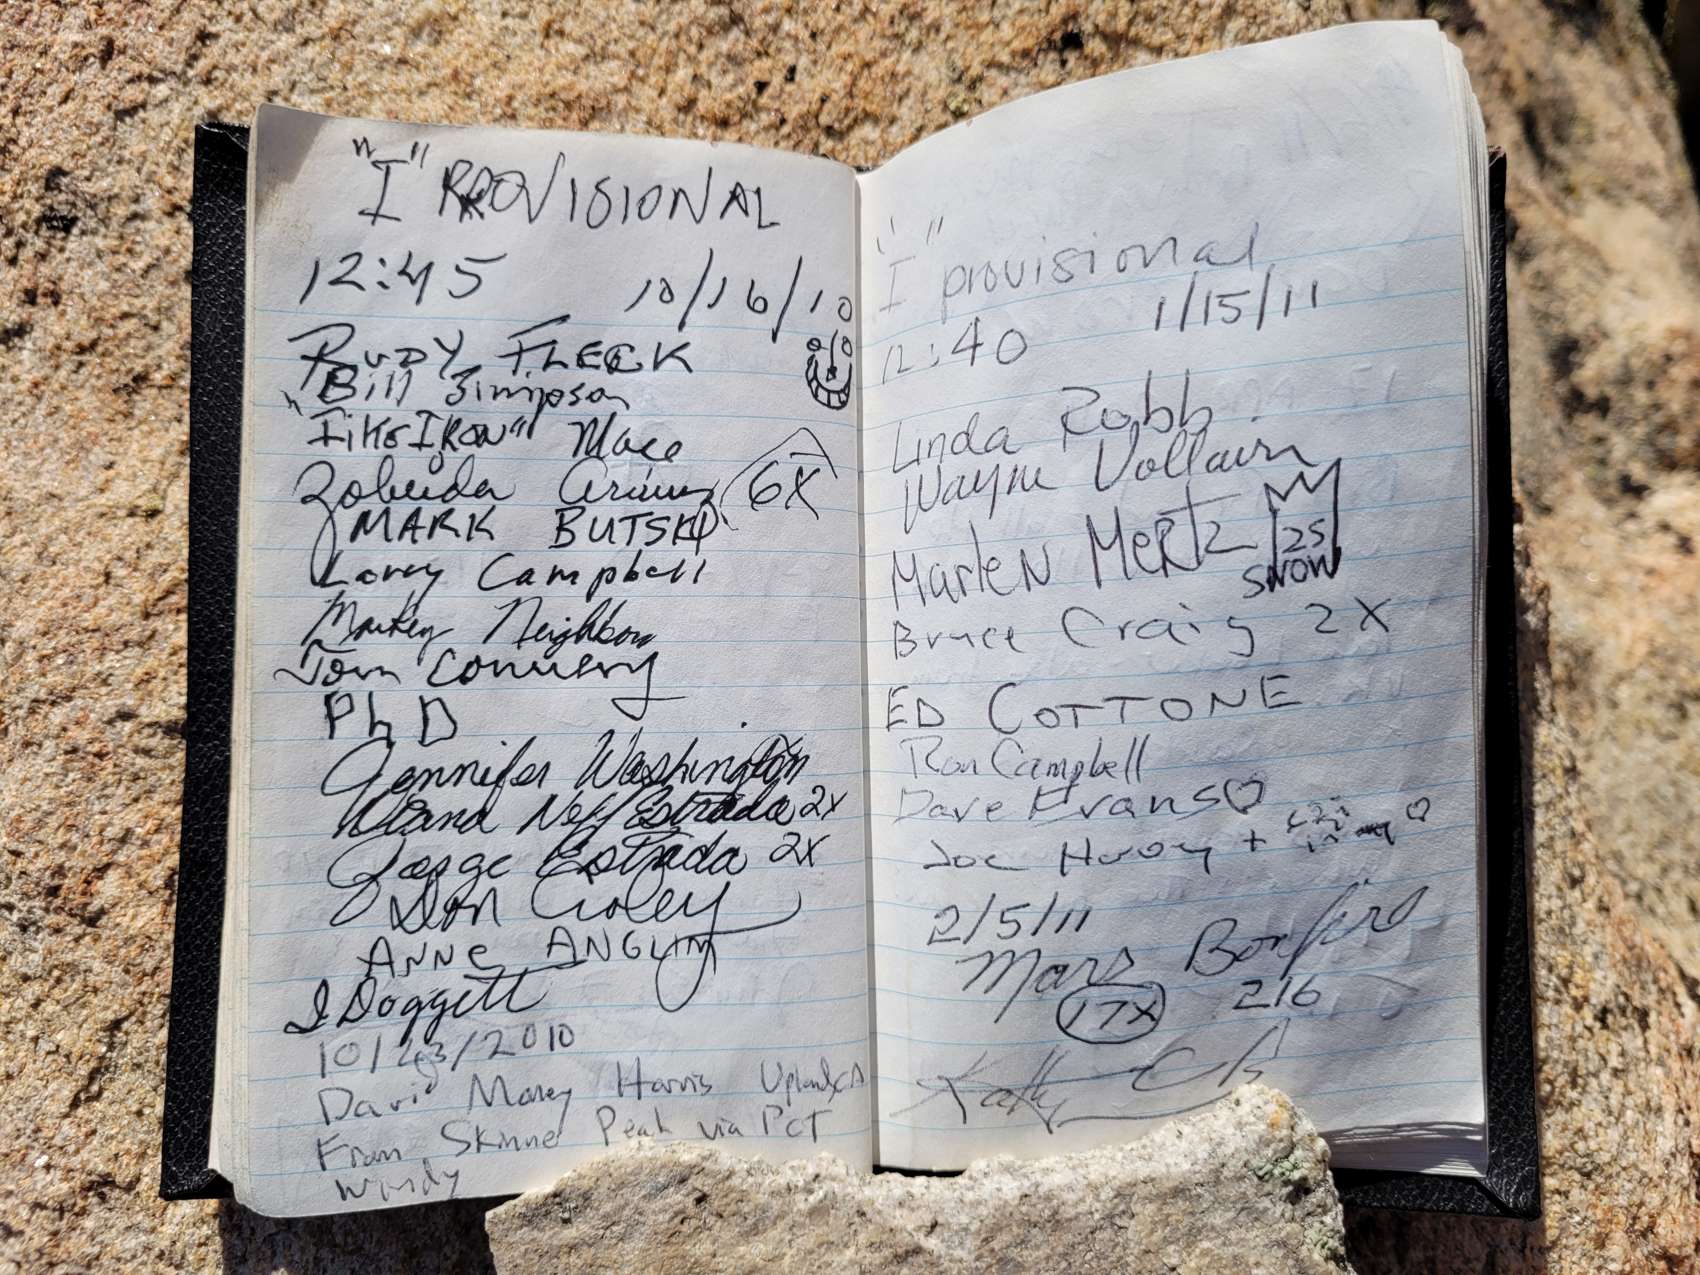 "I" PROVISIONAL
12:45 10/16/10
RUDY FLECK
Bill Simpson
"Fike IRON" Mace
Zobeida 6X
MARK BUTSKI
Larry Campbell
Markey Neighbors
Tom Connery
PhD
Jennifer Washington
Deana Neff/Estrada 2x
Jorge Estrada 2x
Don Croley
ANNE ANGLIM
J Doggett
10/23/2010
David Maney Harris Upland, CA
From Skinner Peak via PCT
windy
"I" provisional
1/15/11
12:40
Linda Robb
Wayne Vollaire
Marlen Mertz 25
SNOW
Bruce Craig 2X
ED COTTONE
Ron Campbell
Dave Evans ♡
Joe +
2/5/11
Mars Bonfire
17x 216
Kathy